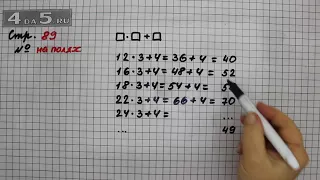 4DA5.RU
Стр. 89
№ на полях
□·□+□
12·3+4=36+4=40
16·3+4=48+4=52
18·3+4=54+4=
22·3+4=66+4=70
24·3+4= ...
... 49